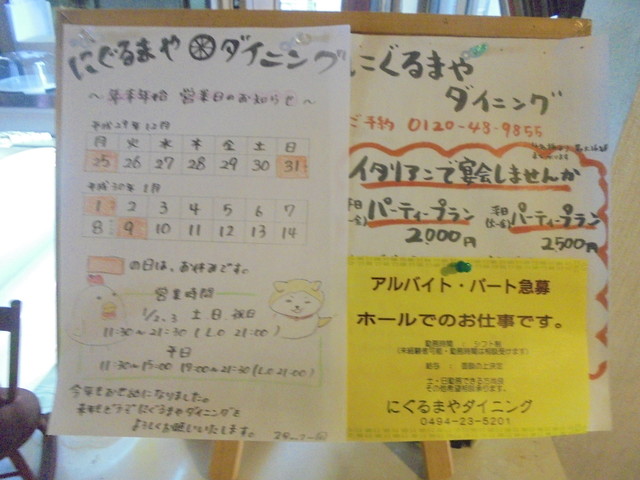 にぐるまや ダイニング
～年末年始 営業日のお知らせ～
平成29年12月
月 火 水 木 金 土 日
25 26 27 28 29 30 31
平成30年1月
1 2 3 4 5 6 7
8 9 10 11 12 13 14
の日は、お休みです。
営業時間
1/2.3 土 日 祝日
11:30～21:30 (L.O 21:00)
平日
11:30～15:00 17:00～21:30 (L.O 21:00)
今年もお世話になりました。
来年もどうぞにぐるまやダイニングを
よろしくお願いいたします。
にぐるまや
ダイニング
ご予約 0120-48-9855
イタリアンで宴会しませんか
パーティープラン
2000円
平日
パーティープラン
2500円
アルバイト・パート急募
ホールでのお仕事です。
勤務時間 : シフト制
(未経験者可能・勤務時間は相談受けます)
給与 : 面談の上決定
土・日勤務できる方尚良
その他希望相談承ります。
にぐるまやダイニング
0494-23-5201